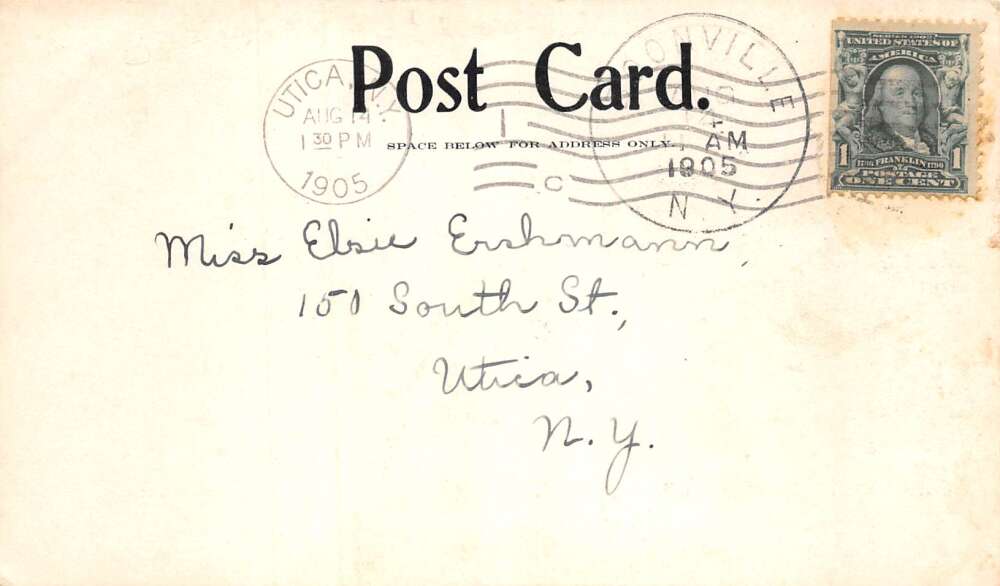 Post Card.
SPACE BELOW FOR ADDRESS ONLY.
UTICA, N.Y.
AUG 14
1 30 PM
1905
1
C
ONVILLE
AM
1905
N.Y.
SERIES 1902
UNITED STATES OF
AMERICA
1 1
FRANKLIN
POSTAGE
ONE CENT
Miss Elsie Ershmann,
150 South St.,
Utica,
N.Y.